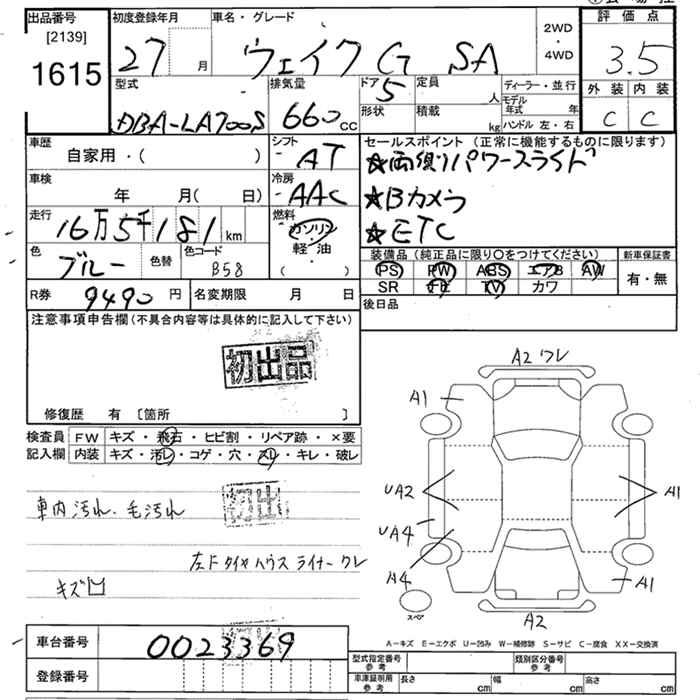 出品番号 初度登録年月 車名・グレード 2WD・4WD 評価点
[2139]
1615 27 月 ウェイク G SA 3.5
型式 排気量 ドア 5 定員 人 ディーラー・並行 外装 内装
DBA-LA700S 660 CC 形状 積載 kg モデル年式 年 ハンドル 左・右 C C
車歴 自家用・( ) シフト AT セールスポイント (正常に機能するものに限ります)
★両側パワースライド
車検 年 月(日) 冷房 AAC ★Bカメラ
走行 16万5千181 km 燃料 ガソリン 軽・油 ( ) ★ETC
色 ブルー 色替 色コード B58 装備品 (純正品に限り○をつけてください) 新車保証書
PS PW ABS エアB AW 有・無
SR TV カワ
R券 9490 円 名変期限 月 日 後日品
注意事項申告欄 (不具合内容等は具体的に記入して下さい)
初出品
修復歴 有 [箇所 ]
検査員 FW キズ・飛石・ヒビ割・リペア跡・×要
記入欄 内装 キズ・汚レ・コゲ・穴・スレ・キレ・破レ
A2 ワレ
A1
UA2 A1
UA4
A4 A1
スペア
A2
初出
車内汚れ・毛汚れ
左F タイヤハウス ライナー ワレ
キズ
車台番号 0023369
登録番号
A-キズ E-エクボ U-凹み W-補修跡 S-サビ C-腐食 XX-交換済
型式指定番号 参考 類別区分番号 参考
車庫証明用 参考 長さ cm 幅 cm 高さ cm